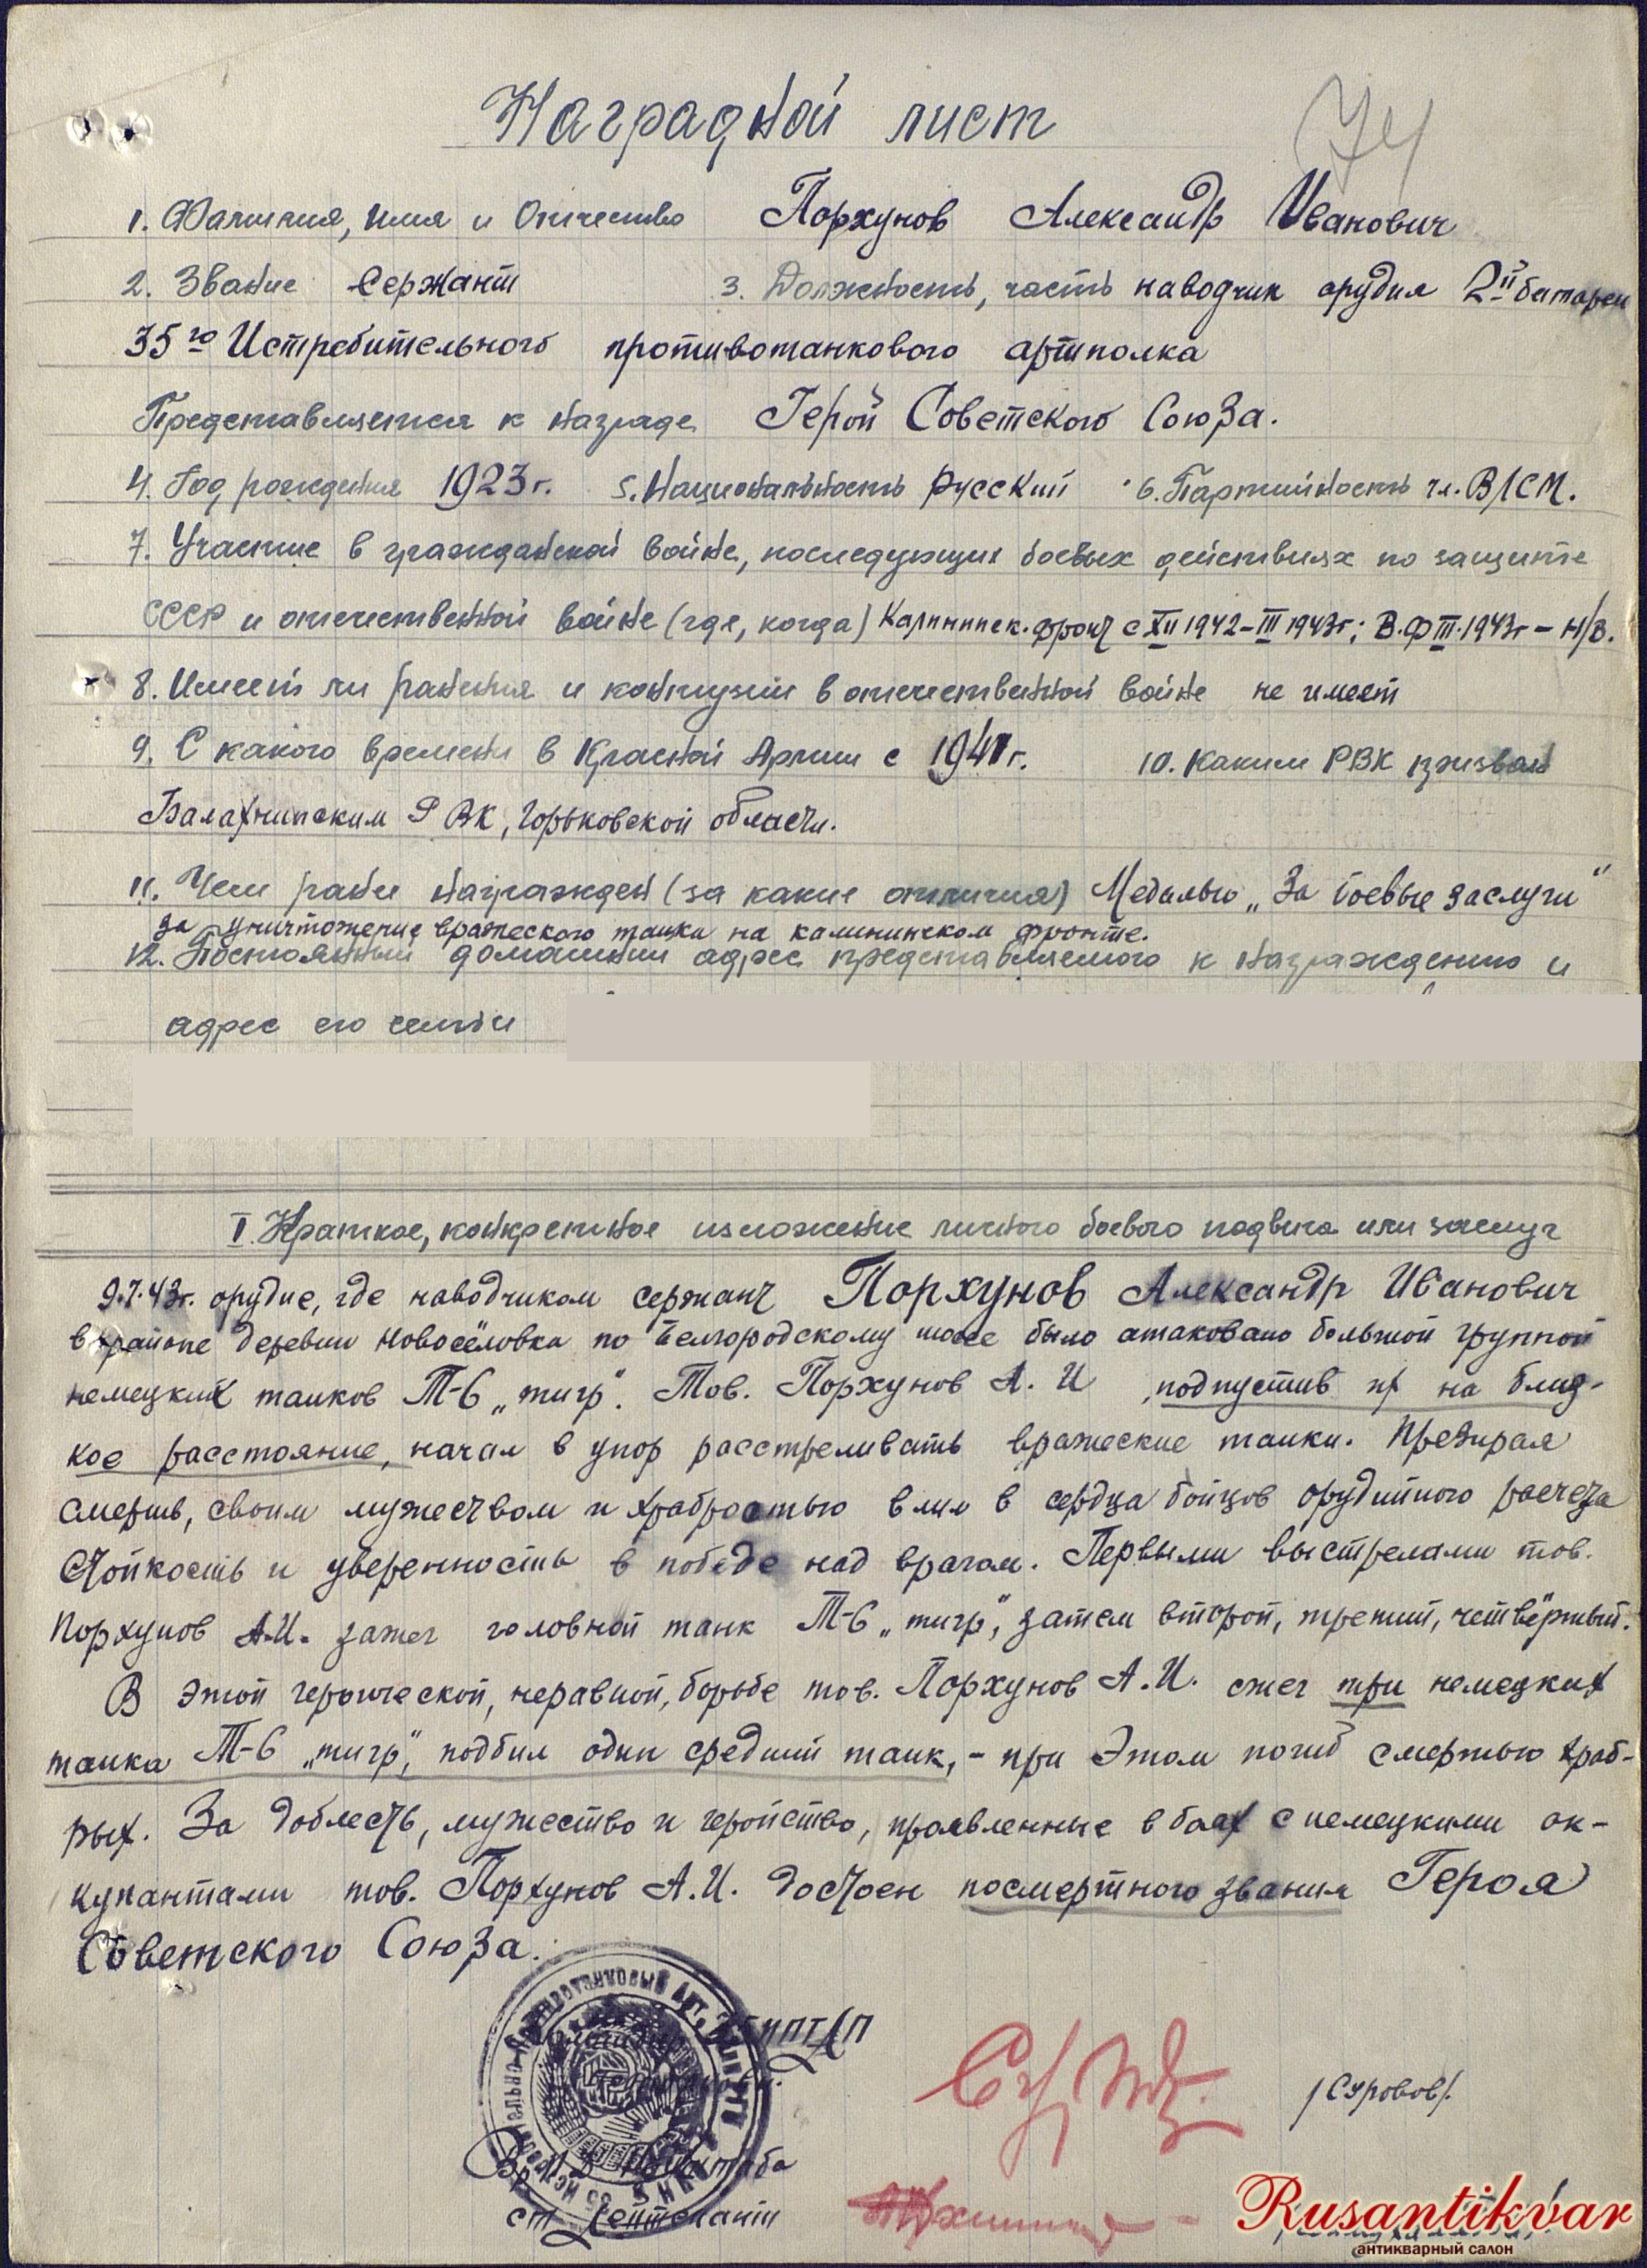 Наградной лист
74
1. Фамилия, имя и Отчество Порхунов Александр Иванович
2. Звание Сержант 3. Должность, часть наводчик орудия 2й батареи
35го Истребительного противотанкового артполка
Представляется к награде Герой Советского Союза.
4. Год рождения 1923г. 5. Национальность Русский 6. Партийность чл. ВЛСМ.
7. Участие в гражданской войне, последующих боевых действиях по защите
СССР и отечественной войне (где, когда) Калининск. фронт с XII 1942-III 1943г; В.Ф III.1943г - Н/В.
8. Имеет ли ранения и контузии в отечественной войне не имеет
9. С какого времени в Красной Армии с 1941г. 10. Каким РВК призван
Балахнинским РВК, Горьковской области.
11. Чем ранее награжден (за какие отличия) Медалью „За боевые заслуги"
за уничтожение вражеского танка на калининском фронте.
12. Постоянный домашний адрес представляемого к награждению и
адрес его семьи
I. Краткое, конкретное изложение личного боевого подвига или заслуг
9.7.43г. орудие, где наводчиком сержант Порхунов Александр Иванович
в районе деревни Новосёловка по Белгородскому шоссе было атаковано большой группой
немецких танков Т-6 „тигр". Тов. Порхунов А. И, подпустив их на близ-
кое расстояние, начал в упор расстреливать вражеские танки. Презирая
смерть, своим мужеством и храбростью влил в сердца бойцов орудийного расчета
стойкость и уверенность в победе над врагом. Первыми выстрелами тов.
Порхунов А.И. зажег головной танк Т-6 „тигр", затем второй, третий, четвёртый.
В этой героической, неравной, борьбе тов. Порхунов А.И. сжег три немецких
танка Т-6 „тигр", подбил один средний танк, - при этом погиб смертью храб-
рых. За доблесть, мужество и геройство, проявленные в боях с немецкими ок-
купантами тов. Порхунов А.И. достоен посмертного звания Героя
Советского Союза.
Командир ИПТАП
/Суровов/.
Вр. И.Д. Нач. штаба
ст. Лейтенант
Rusantikvar
антикварный салон